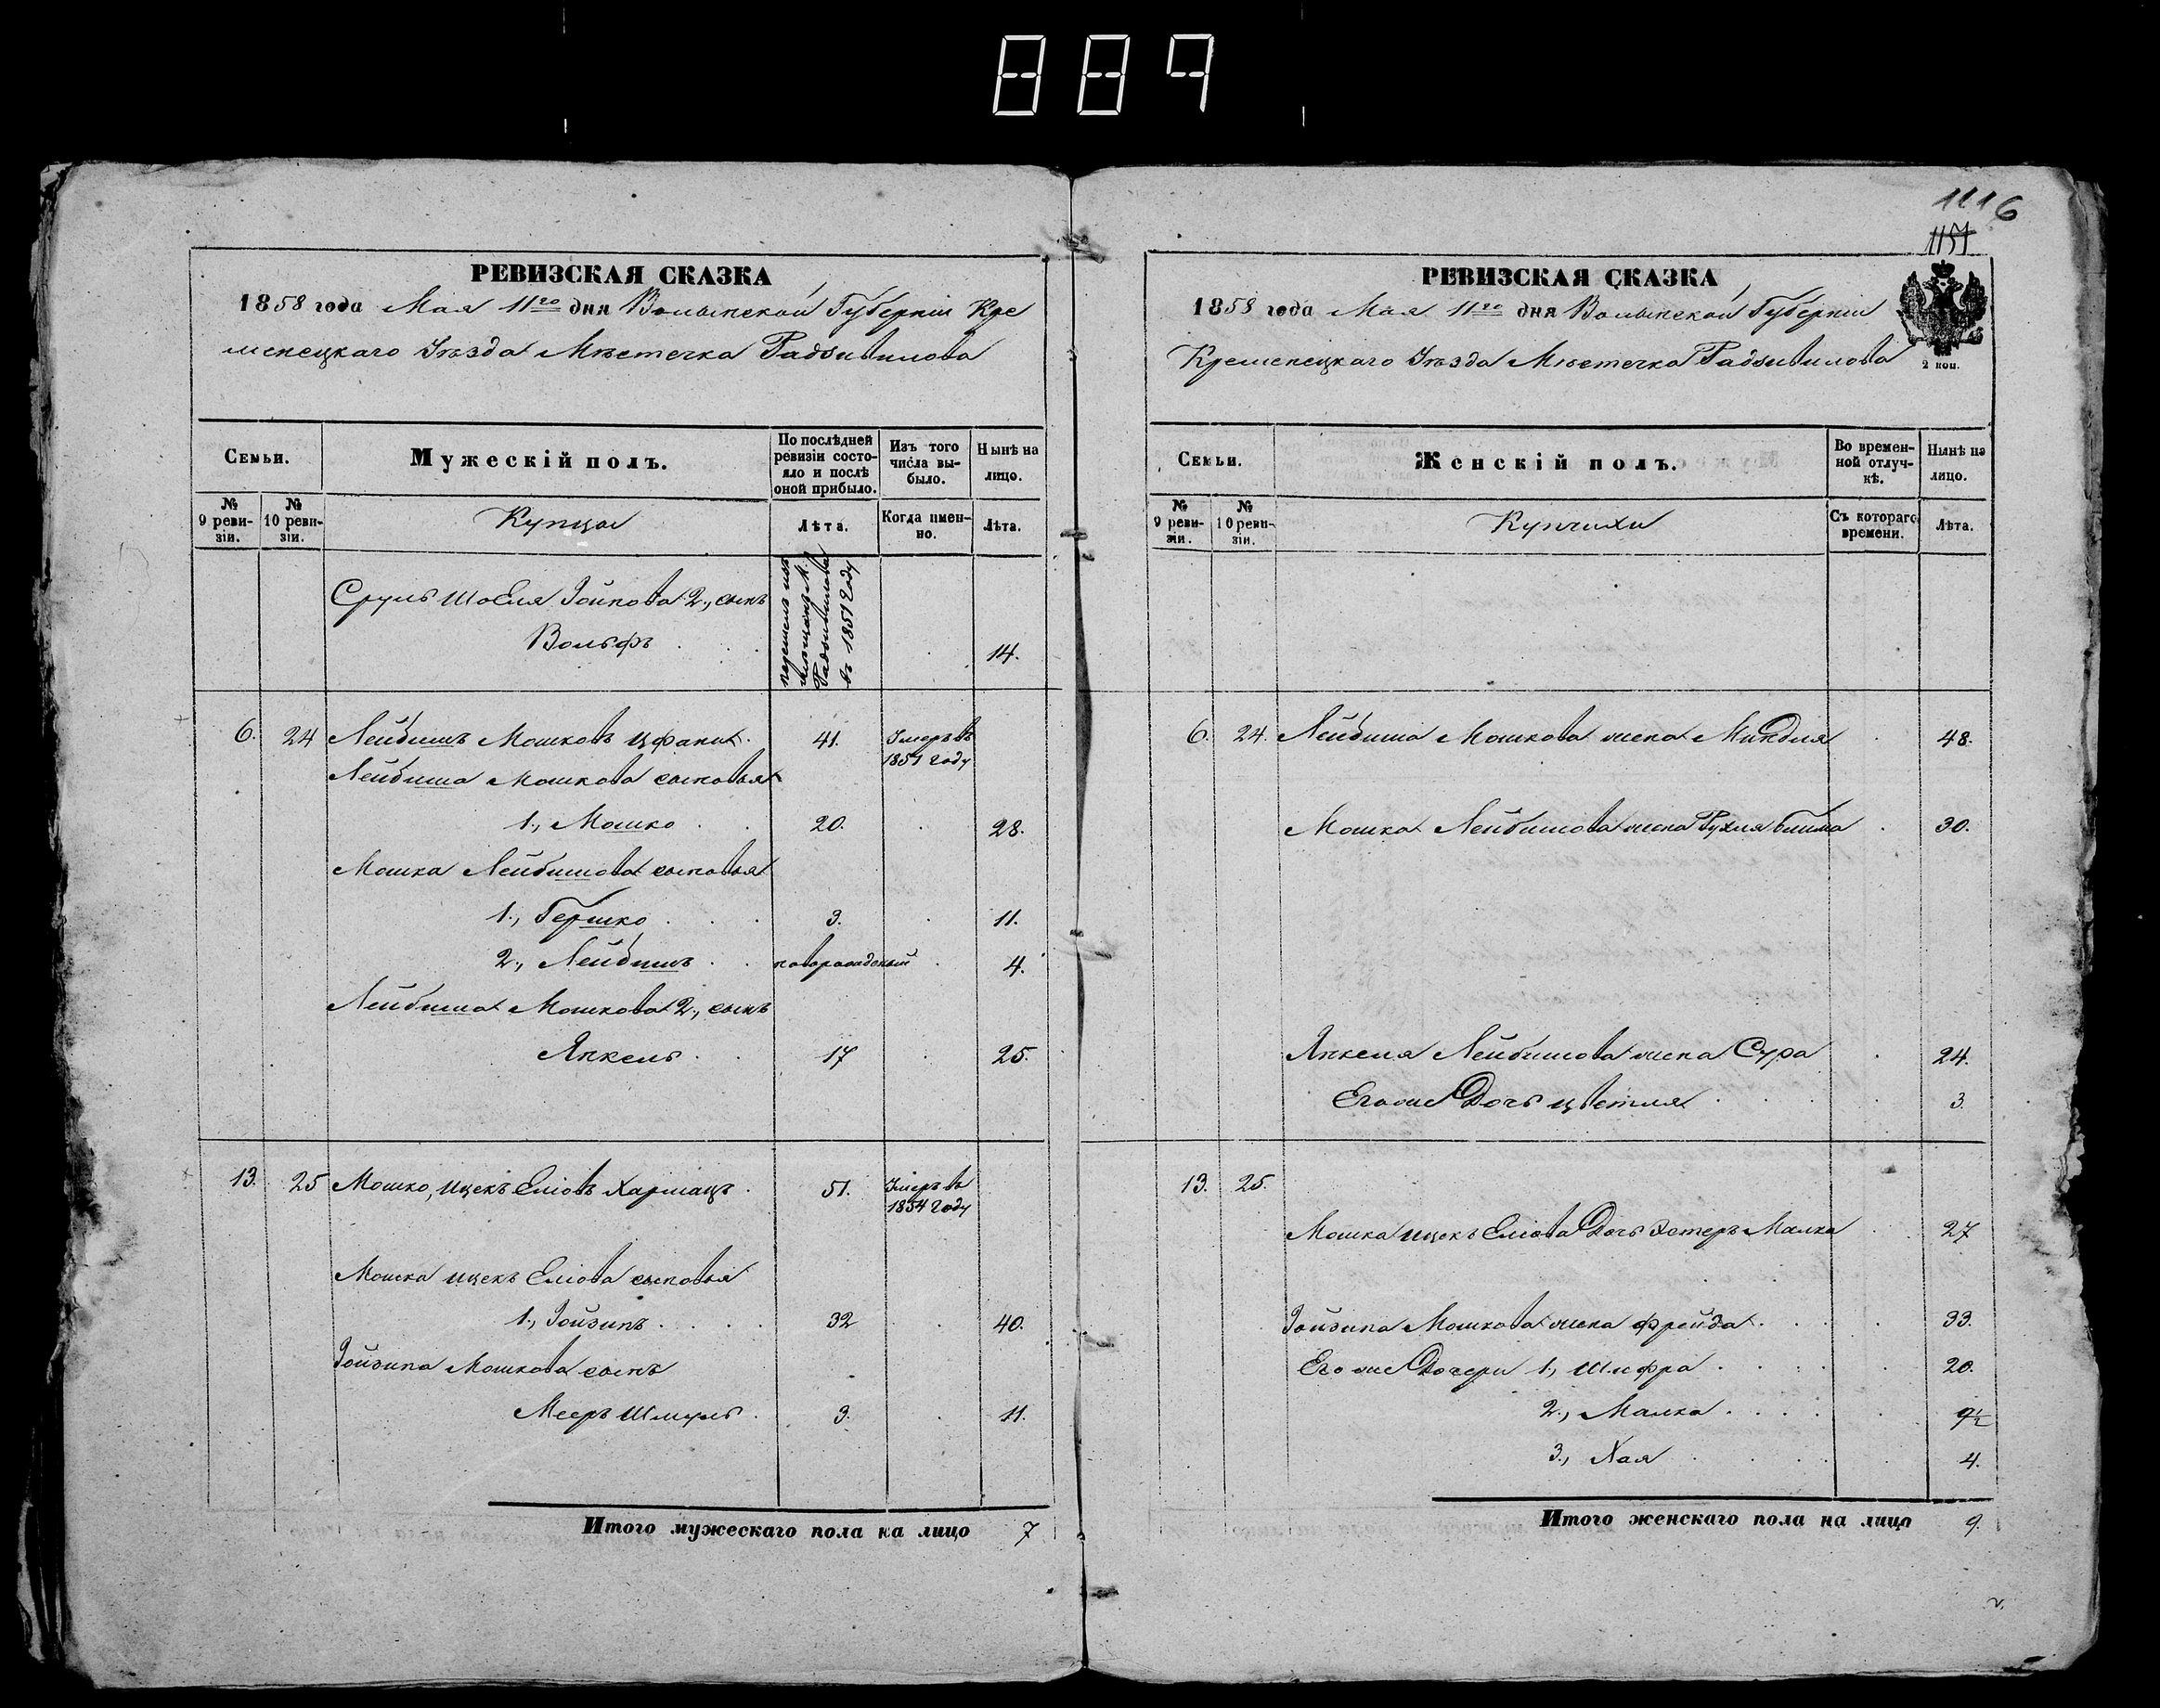 889
1116
1151
РЕВИЗСКАЯ СКАЗКА
1858 года Мая 11го дня Волынской Губернiи Кре
менецкаго Уѣзда Мѣстечка Радзивилова
Семьи.
Мужескiй полъ.
По послѣдней ревизiи состояло и послѣ оной прибыло.
Изъ того числа выбыло.
Нынѣ на лицо.
№ 9 ревизiи.
№ 10 ревизiи.
Купцы
Лѣта.
Когда именно.
Лѣта.
Сруль Шоеля Іойнова 2., сынъ
Вольфъ 14.
въ 1851 Году
6. 24 Лейбишъ Мошковъ Цфани. 41. Умеръ въ 1851 Году
Лейбиша Мошкова сыновья
1., Мошко 20. 28.
Мошка Лейбишова сыновья
1., Гершко 3. 11.
2., Лейбишъ новорожденый 4.
Лейбиша Мошкова 2., сынъ
Янкель 17 25.
13. 25 Мошко, Ицекъ Еліовъ Хармацъ. 51. Умеръ въ 1854 Году
Мошка Ицекъ Еліова сыновья
1., Іойзипъ 32 40.
Іойзипа Мошкова сынъ
Мееръ Шмуль. 3. 11.
Итого мужескаго пола на лицо 7
РЕВИЗСКАЯ СКАЗКА
1858 года Мая 11го дня Волынской Губернiи
Кременецкаго Уѣзда Мѣстечка Радзивилова
2 коп.
Семьи.
Женскiй полъ.
Во временной отлучкѣ.
Нынѣ на лицо.
№ 9 ревизiи.
№ 10 ревизiи.
Купчихи
Съ котораго времени.
Лѣта.
6. 24. Лейбиша Мошкова жена Миндля 48.
Мошка Лейбишова жена Рухля Блима 30.
Янкеля Лейбишова жена Сура 24.
Его же Дочь Цветля 3.
13. 25.
Мошка Ицекъ Еліова Дочь Эстеръ Малка 27
Іойзипа Мошкова жена Фрейда 33.
Его же Дочери 1., Шифра 20.
2., Малка 9½
3., Хая 4.
Итого женскаго пола на лицо 9.